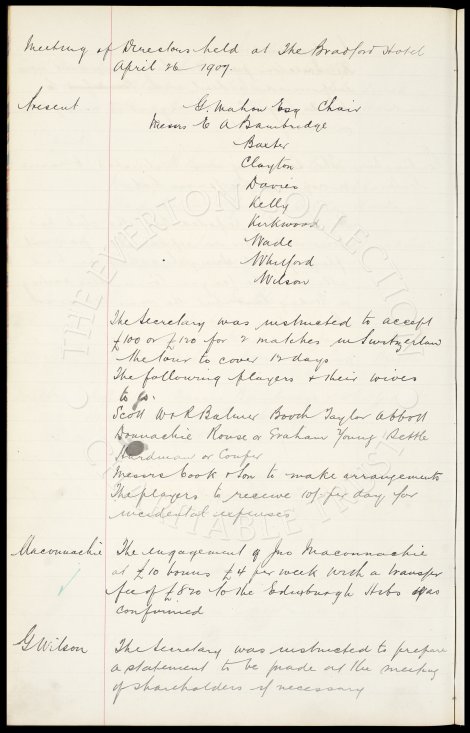 Meeting of Directors held at The Bradford Hotel
April 26 1907.
Present
G. Mahon Esq Chair
Messrs E A Bainbridge
Baxter
Clayton
Davies
Kelly
Kirkwood
Wade
Whitford
Wilson
The Secretary was instructed to accept
£100 or £120 for 2 matches in Switzerland
the tour to cover 12 days
The following players & their wives
to go.
Scott W & R Balmer Booth Taylor Abbott
Donnachie Rouse or Graham Young Settle
Hardman or Couper
Messrs Cook & Son to make arrangements
The players to receive 10/- per day for
incidental expenses
Maconnachie
The engagement of Jno Maconnachie
at £10 bonus £4 per week with a transfer
fee of to the Edinburgh Hibs was
confirmed
G Wilson
The Secretary was instructed to prepare
a statement to be made at the meeting
of shareholders if necessary
THE EVERTON COLLECTION
CHARITABLE TRUST